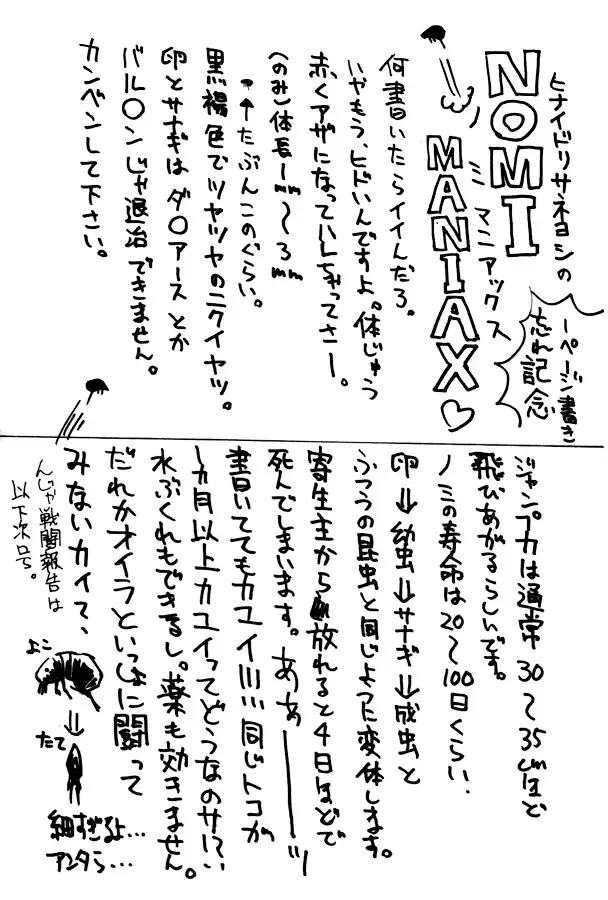 ヒナイドリサネヨシの
NOMI
ノミ マニアックス
MANIAX♡
1ページ書き
忘れ記念
何書いたらイイんだろ。
いやもう、ヒドいんですよ。体じゅう
赤くアザになっていしちゃってさー。
(のみ)体長1mm〜3mm
・←たぶんこのぐらい。
黒褐色でツヤツヤのニクイヤツ。
卵とサナギはダ〇アースとか
バル〇ンじゃ退治できません。
カンベンして下さい。
ジャンプ力は通常30〜35cmほど
飛びあがるらしいです。
ノミの寿命は20〜100日くらい.
卵⇒幼虫⇒サナギ⇒成虫と
ふつうの昆虫と同じように変体します。
寄生主から放れると4日ほどで
死んでしまいます。あぁーーーッ
書いててもカユイ!!!!同じトコが
1ヵ月以上カユイってどうなのサ!?
水ぶくれもできるし。薬も効きません。
だれかオイラといっしょに闘って
みないカイ?、
んじゃ戦闘報告は
以下次号。
よこ
⇓
たて
細すぎるよ…
アンタら…